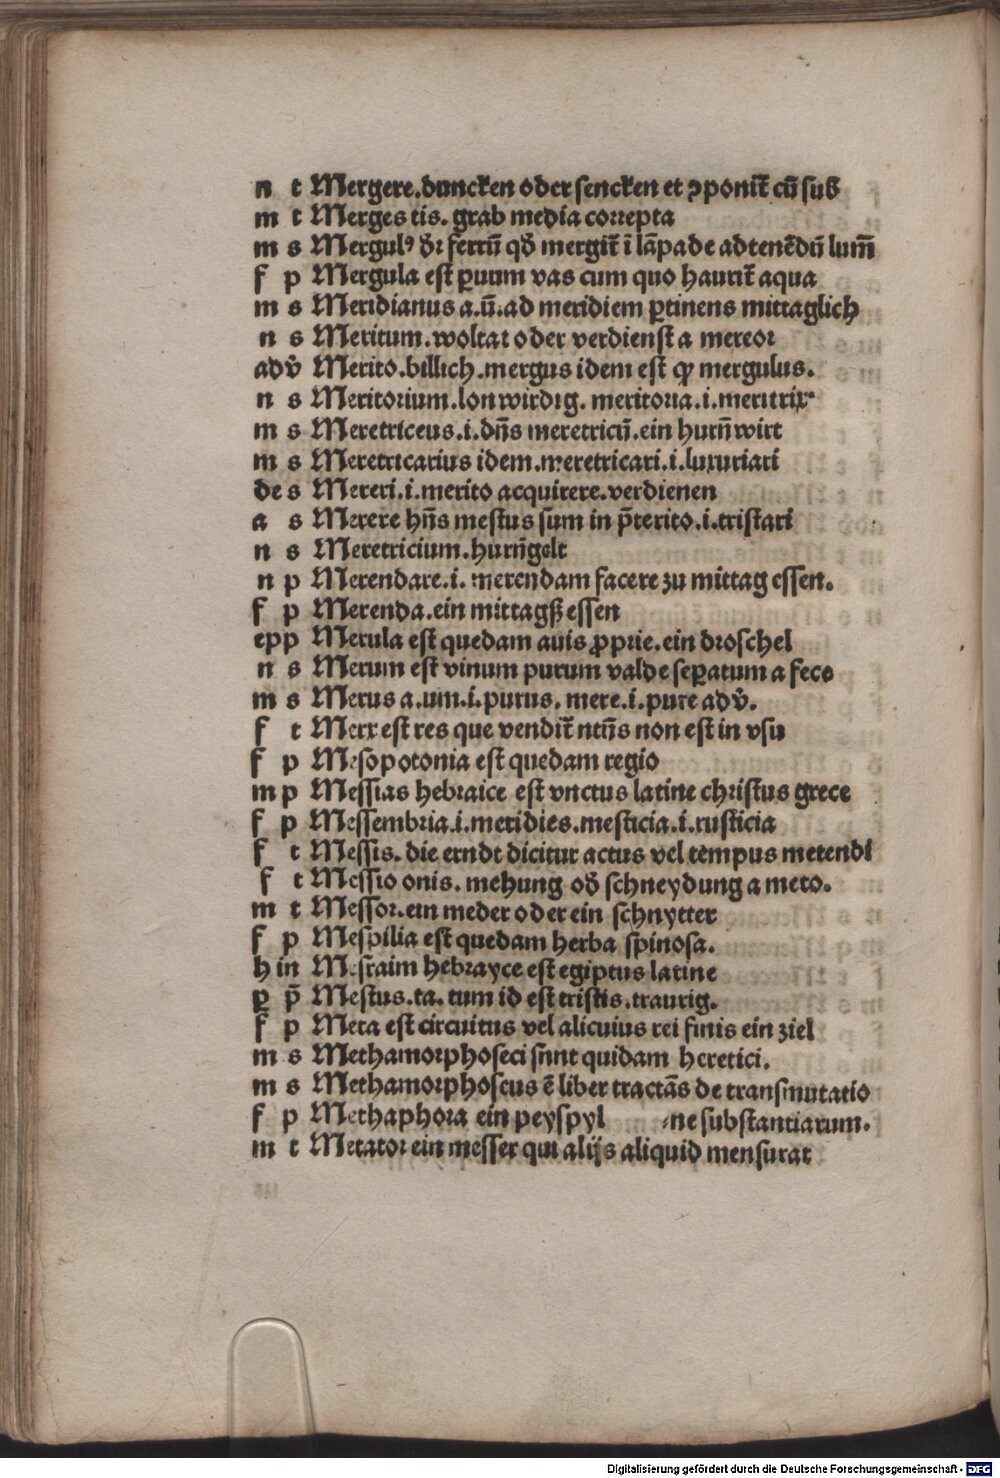 n t Mergere.duncken oder sencken et ꝯponit᷑ cū sub
m t Merges tis. grab media correpta
m s Mergulꝰ dr̄ ferrū qd̄ mergit᷑ ī lāpade ad tenēdū lum̄
f p Mergula est ꝑuum vas cum quo haurit᷑ aqua
m s Meridianus a.ū.ad meridiem ꝑtinens mittaglich
n s Meritum.woltat oder verdienst a mereor
adv̄ Merito.billich.mergus idem est ꝙ mergulus.
n s Meritorium.lon wirdig. meritoria.i.meritrix
m s Meretriceus.i.dn̄s meretricū.ein hurn̄wirt
m s Meretricarius idem.meretricari.i.luxuriari
de s Mereri.i.merito acquirere.verdienen
a s Merere hn̄s mestus sum in p̄terito.i.tristari
n s Meretricium.hurn̄gelt
n p Merendare.i. merendam facere zu mittag essen.
f p Merenda.ein mittagß essen
epp Merula est quedam auis ꝓprie.ein droschel
n s Merum est vinum purum valde seꝑatum a fece
m s Merus a.um.i.purus. mere.i.pure adv̄.
f t Merx est res que vendit᷑ ntn̄s non est in vsu
f p Mesopotonia est quedam regio
m p Messias hebraice est vnctus latine christus grece
f p Messembria.i.meridies.mesticia.i.rusticia
f t Messis. die erndt dicitur actus vel tempus metendi
f t Messio onis. mehung od̄ schneydung a meto.
m t Messor.ein meder oder ein schnytter
f p Mespilia est quedam herba spinosa.
h in Mesraim hebrayce est egiptus latine
ꝑ p̄ Mestus.ta. tum id est tristis.traurig.
f p Meta est circuitus vel alicuius rei finis ein ziel
m s Methamorphoseci snnt quidam heretici.
m s Methamorphoseus ē liber tractās de transmutatio
f p Methaphora ein peyspyl ne substantiarum.
m t Metator ein messer qui alijs aliquid mensurat
Digitalisierung gefördert durch die Deutsche Forschungsgemeinschaft - DFG